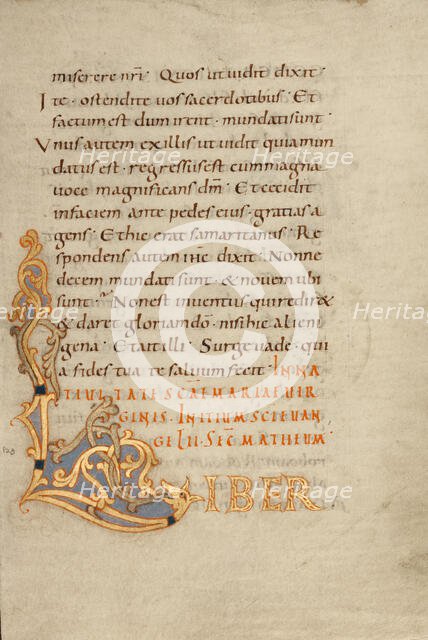 miserere nri · Quos ut vidit dixit ·
Ite · ostendite vos sacerdotibus · Et
factum est dum irent · mundati sunt ·
Unus autem ex illis ut vidit quia mun
datus est · regressus est cum magna
voce magnificans dm · Et cecidit
in faciem ante pedes eius · gratias a
gens · Et hic erat samaritanus · Re
spondens autem ihc dixit · Nonne
decem mundati sunt · & novem ubi
sunt · Non est inventus qui redir&
& dar& gloriam do · nisi hic alieni
gena · Et ait illi · Surge vade · qui
a fides tua te salvum fecit · IN NA
TIVITATE SCAE MARIAE VIR
GINIS · INITIUM SCI EVAN
GELII · SEC MATHEUM ·
LIBER
128
Heritage
Heritage
Heritage
Heritage
Heritage
Heritage
Heritage
C